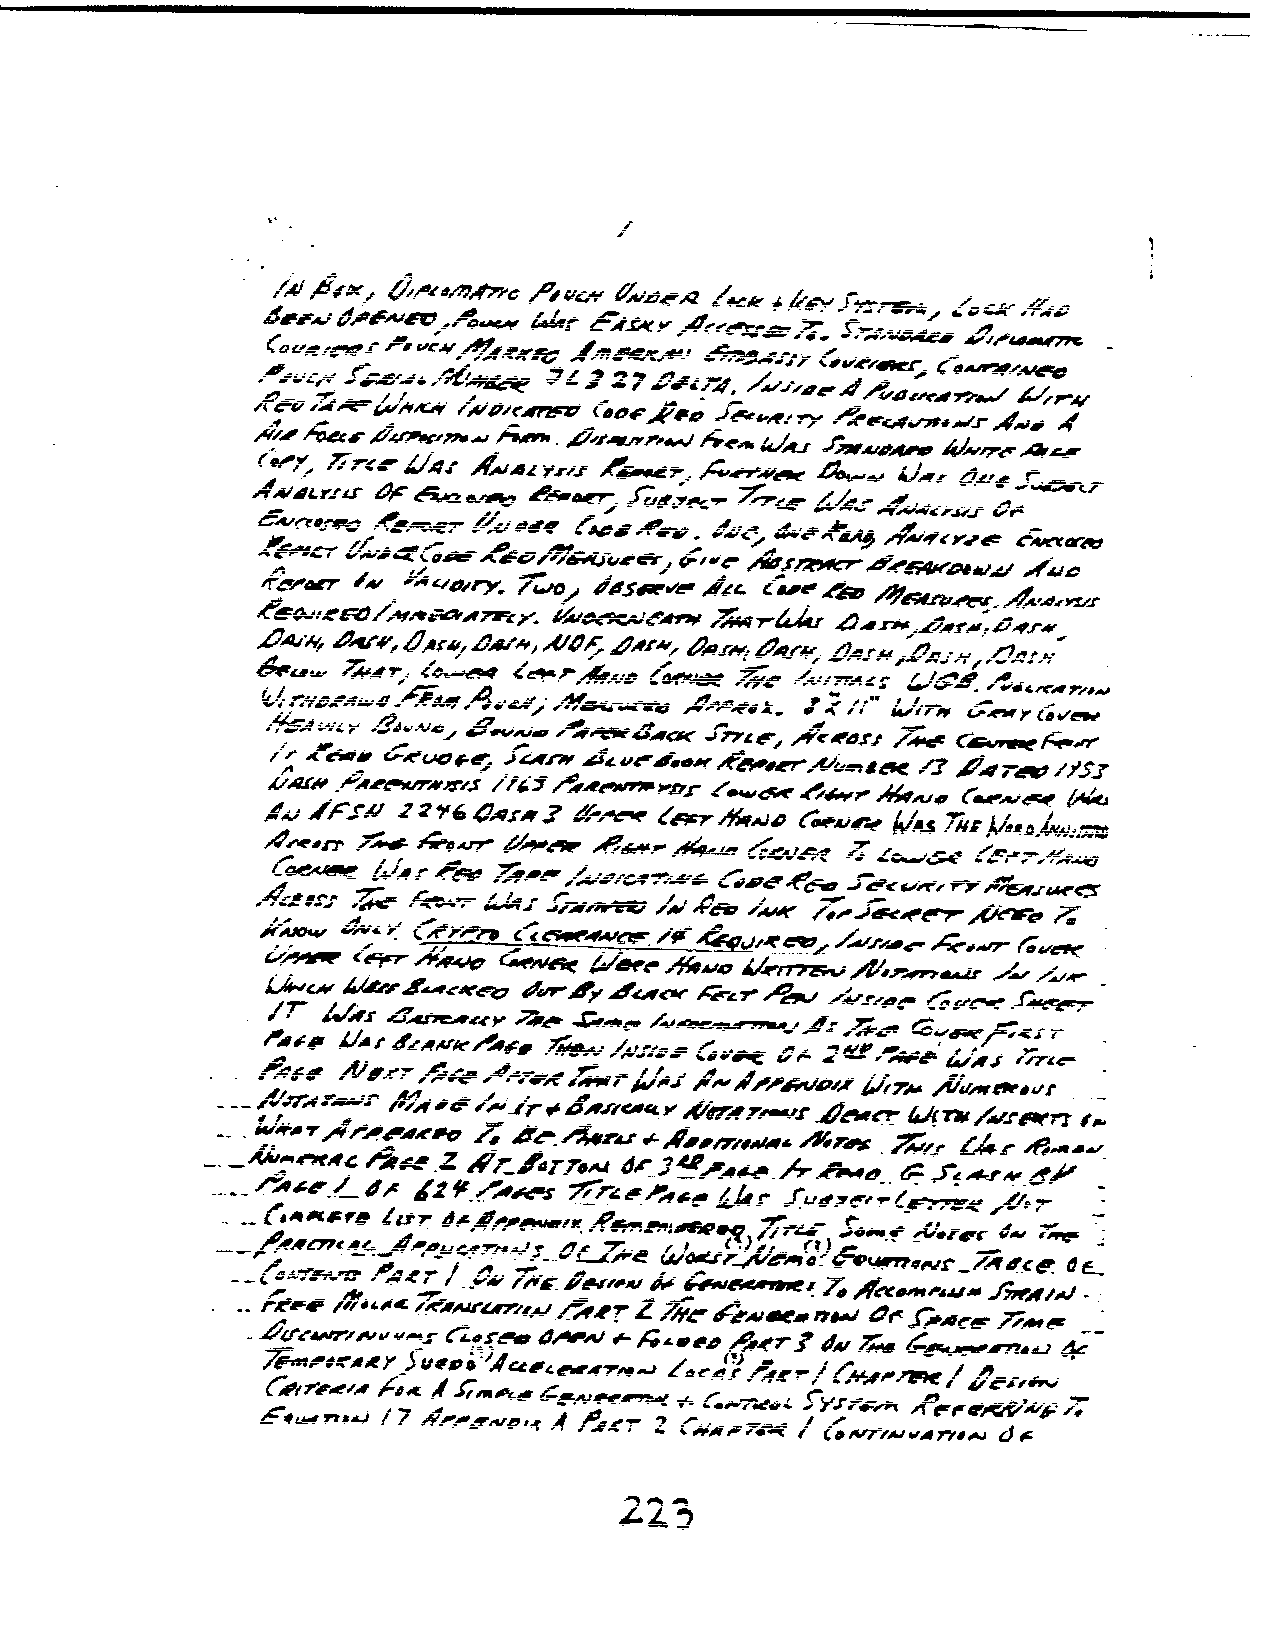 1
In Box, Diplomatic Pouch Under Lock + Key System, Lock Had
Been Opened, Pouch Was Easily Accessed To. Standard Diplomatic
Couriers Pouch Marked American Embassy Couriers, Contained
Pouch Serial Number JL327 Delta. Inside A Publication With
Red Tape Which Indicated Code Red Security Precautions And A
Air Force Disposition Form. Disposition Form Was Standard White
Copy, Title Was Analysis Report, Further Down Was One Subject
Analysis Of Enclosed Report, Subject Title Was Analysis Of
Enclosed Report Under Code Red. One, Analyze Enclosed
Report Under Code Red Measures, Give Abstract Breakdown And
Report In Validity. Two, Observe All Code Red Measures, Analysis
Required Immediately. Underneath That Was Dash, Dash, Dash,
Dash, Dash, Dash, Dash, NDF, Dash, Dash, Dash, Dash, Dash, Dash
Below That, Lower Left Hand Corner The Initials WGB. Publication
Withdrawn From Pouch, Measured Approx. 8 x 11" With Gray Cover
Heavily Bound, Bound Paper Back Style, Across The Center Front
It Read Grudge, Slash Blue Book Report Number 13 Dated 1953
Dash Parenthesis 1963 Parenthesis Lower Right Hand Corner Was
An AFSN 2246 Dash 3 Upper Left Hand Corner Was The Word Annotated
Across The Front Upper Right Hand Corner To Lower Left Hand
Corner Was Red Tape Indicating Code Red Security Measures
Across The Front Was Stamped In Red Ink Top Secret Need To
Know Only Crypto Clearance 14 Required, Inside Front Cover
Upper Left Hand Corner Were Hand Written Notations In Ink
Which Were Blacked Out By Black Felt Pen Inside Cover Sheet
It Was Basically The Same Information As The Cover First
Page Was Blank Page Then Inside Cover Or 2nd Page Was Title
Page Next Page After That Was An Appendix With Numerous
Notations Made In It + Basically Notations Dealt With Inserts In
What Appeared To Be Photos + Additional Notes. This Was Roman
Numeral Page 2 At Bottom Of 3rd Page It Read G Slash BV
Page 1 Of 624 Pages Title Page Was Subject Letter Not
Complete List Of Appendix Remembered, Title, Some Notes On The
Practical Applications Of The Worst Nemo Equations Table Of
Contents Part 1 On The Design Of Generators To Accomplish Strain
Free Molar Translation Part 2 The Generation Of Space Time
Discontinuums Closed Open + Folded Part 3 On The Generation Of
Temporary Suedo Acceleration Locas Part 1 Chapter 1 Design
Criteria For A Simple Generator + Control System Referring To
Equation 17 Appendix A Part 2 Chapter 1 Continuation Of
223